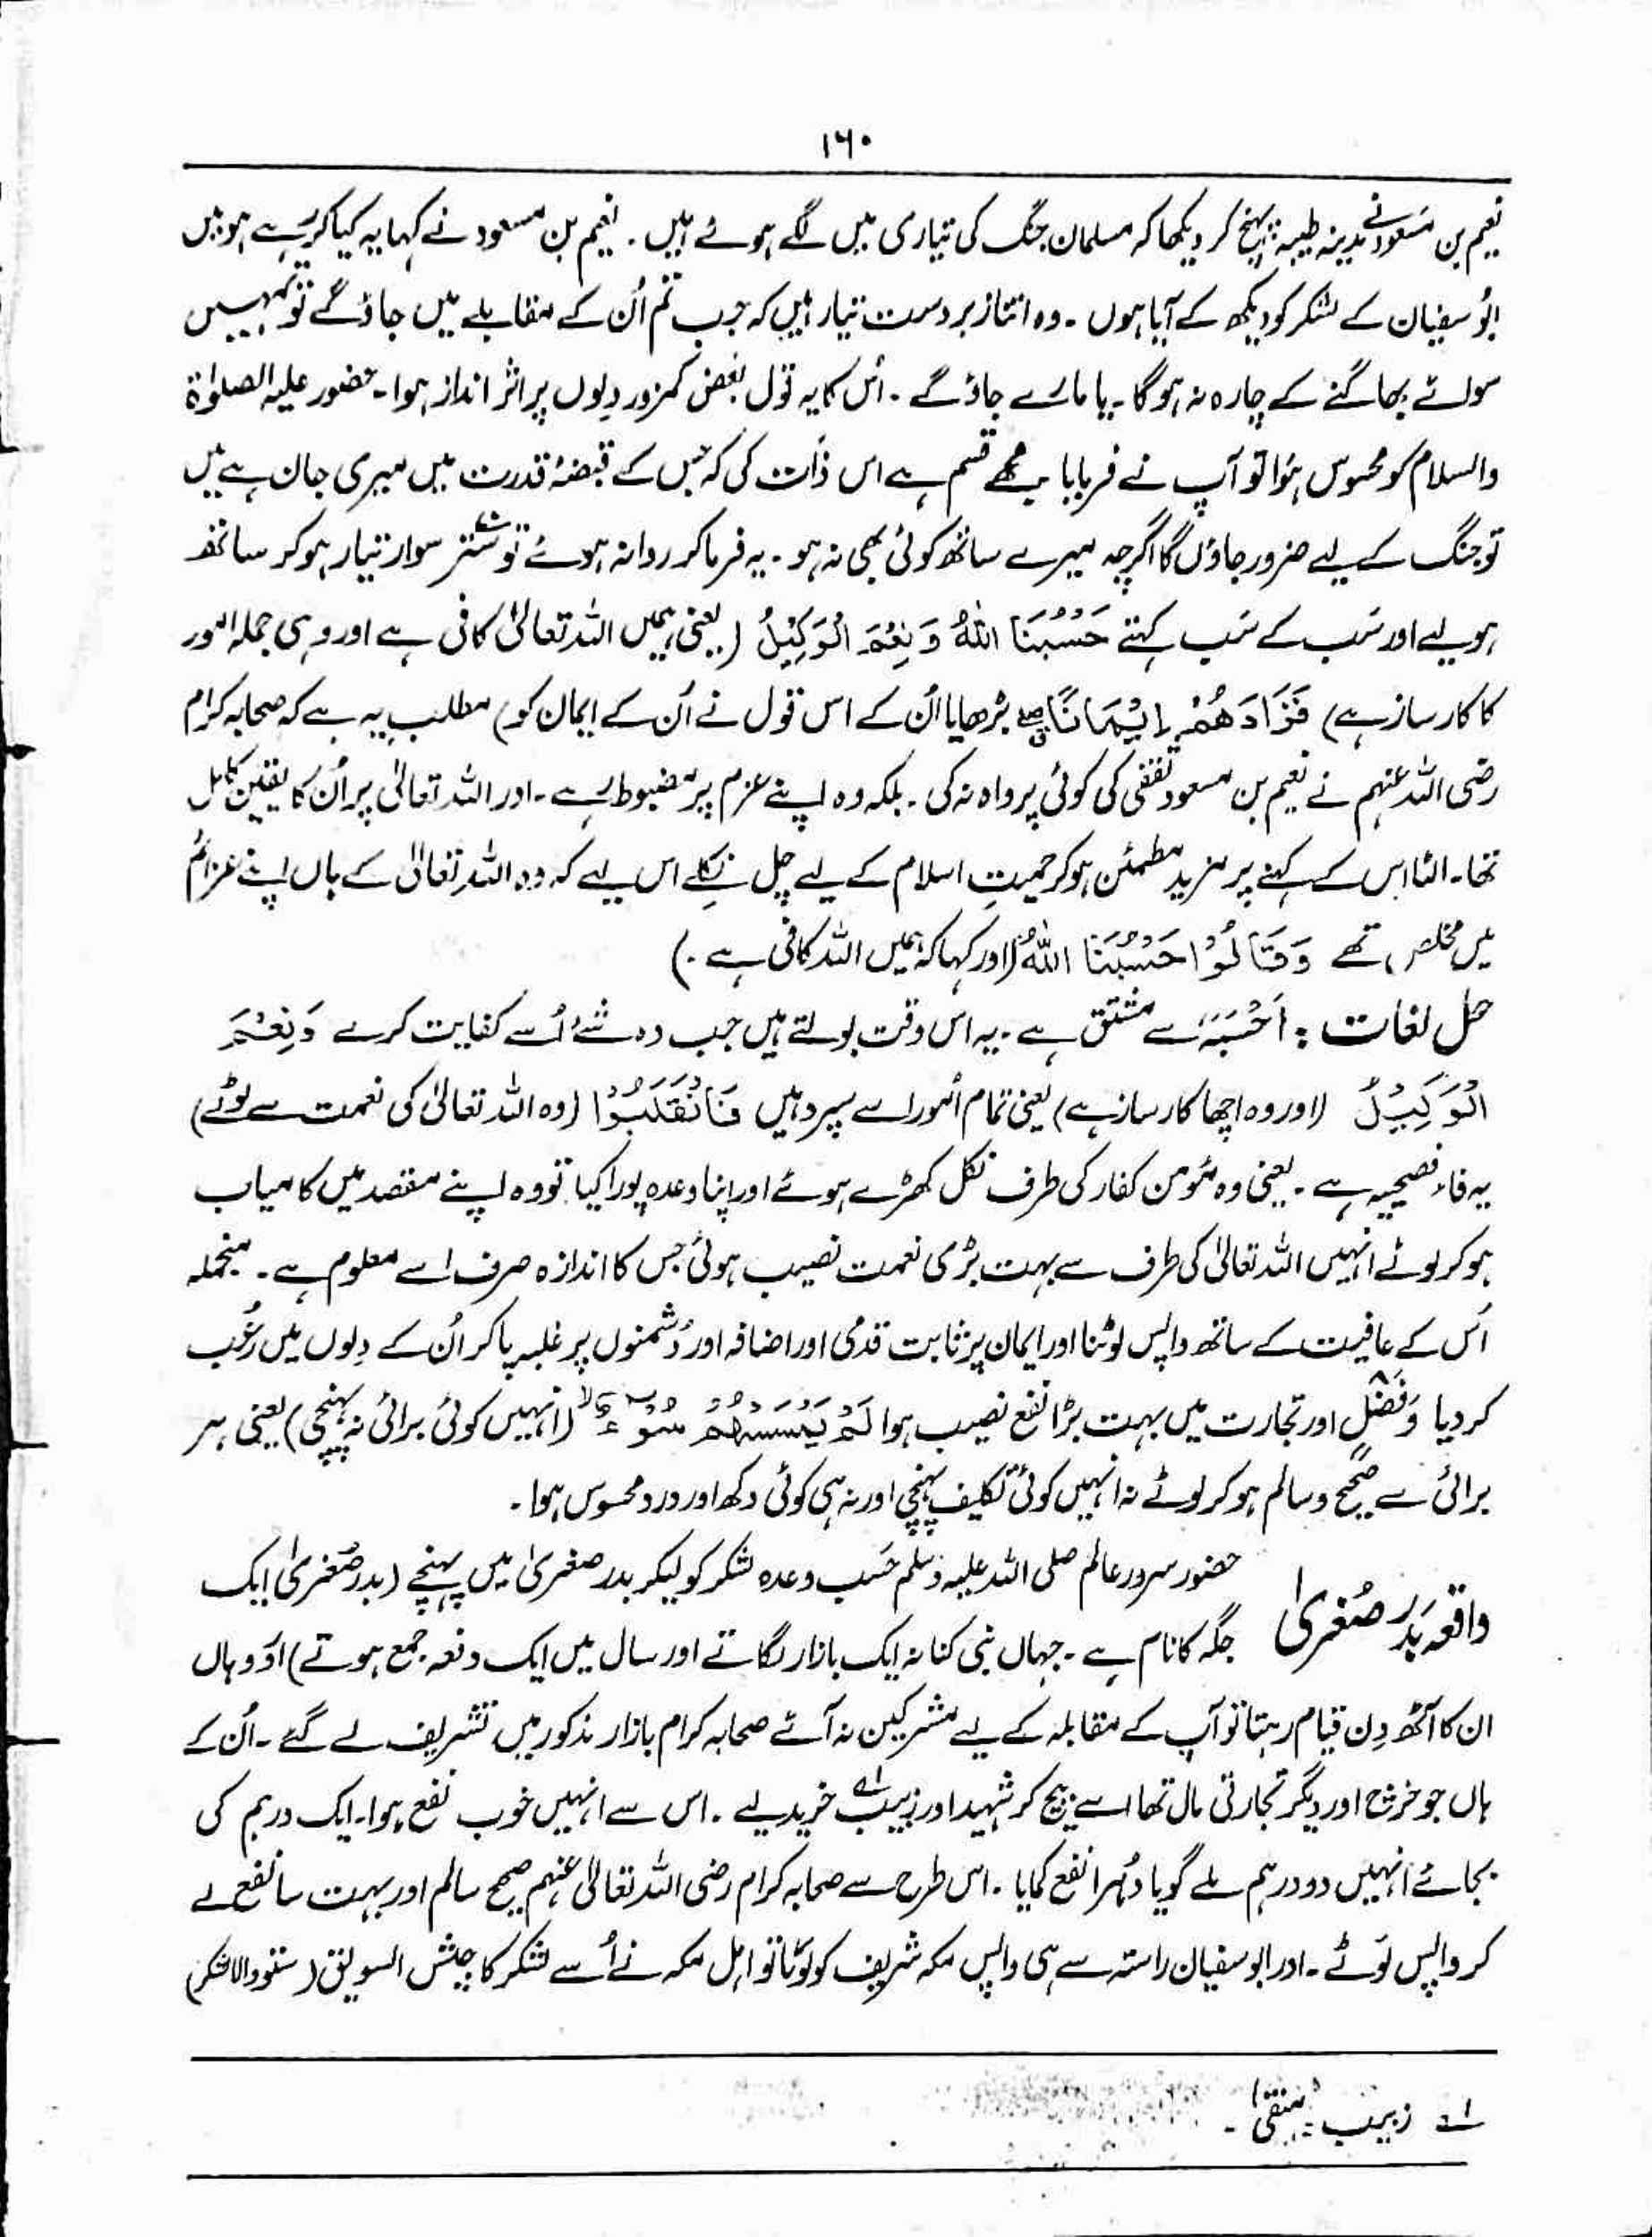 ۱۶۰
نعیم بن مسعود نے مدینہ طیبہ پہنچ کر دیکھا کہ مسلمان جنگ کی تیاری میں لگے ہوئے ہیں ۔ نعیم بن مسعود نے کہا یہ کیا کر رہے ہو میں
ابُو سفیان کے لشکر کو دیکھ کے آیا ہوں ۔ وہ اتنا زبردست تیار ہیں کہ جب تم اُن کے مقابلے میں جاؤ گے تو تمہیں
سوائے بھاگنے کے چارہ نہ ہوگا ۔ یا مارے جاؤ گے ۔ اُس کا یہ قول بعض کمزور دِلوں پر اثر انداز ہوا ۔ حضور علیہ الصلوٰۃ
والسلام کو محسوس ہُوا تو آپ نے فرمایا مجھے قسم ہے اس ذات کی کہ جس کے قبضۂ قدرت میں میری جان ہے میں
تو جنگ کے لیے ضرور جاؤں گا اگرچہ میرے ساتھ کوئی بھی نہ ہو ۔ یہ فرما کر روانہ ہوئے تو ستّر سوار تیار ہو کر ساتھ
ہولیے اور سَب کے سَب کہتے حَسْبُنَا اللّٰہُ وَ نِعْمَ الْوَکِیْلُ (یعنی ہمیں اللہ تعالیٰ کافی ہے اور وہی جملہ امور
کا کارساز ہے) فَزَادَھُمْ اِیْمَانًا بڑھایا اُن کے اس قول نے اُن کے ایمان کو) مطلب یہ ہے کہ صحابہ کرام
رضی اللہ عنہم نے نعیم بن مسعود ثقفی کی کوئی پرواہ نہ کی ۔ بلکہ وہ اپنے عزم پر مضبوط رہے ۔ اور اللہ تعالیٰ پر اُن کا یقین کامل
تھا ۔ الٹا اس کے کہنے پر مزید مطمئن ہو کر حمیتِ اسلام کے لیے چل نکلے اس لیے کہ وہ اللہ تعالیٰ کے ہاں اپنے عزائم
میں مخلص تھے وَقَالُوْا حَسْبُنَا اللّٰہُ (اور کہا کہ ہمیں اللہ کافی ہے ۔)
حل لغات : اَحْسَبَہٗ سے مشتق ہے ۔ یہ اس وقت بولتے ہیں جب وہ شئے اُسے کفایت کرے وَنِعْمَ
الْوَکِیْلُ (اور وہ اچھا کارساز ہے) یعنی تمام اُمور اسے سپرد ہیں فَانْقَلَبُوْا (وہ اللہ تعالیٰ کی نعمت سے لوٹے)
یہ فاء فصیحیہ ہے ۔ یعنی وہ مؤمن کفار کی طرف نکل کھڑے ہوئے اور اپنا وعدہ پورا کیا تو وہ اپنے مقصد میں کامیاب
ہو کر لوٹے انہیں اللہ تعالیٰ کی طرف سے بہت بڑی نعمت نصیب ہوئی جس کا اندازہ صرف اسے معلوم ہے ۔ منجملہ
اُس کے عافیت کے ساتھ واپس لوٹنا اور ایمان پر ثابت قدمی اور اضافہ اور دُشمنوں پر غلبہ پا کر اُن کے دِلوں میں رُعب
کر دیا وَفَضْلٍ اور تجارت میں بہت بڑا نفع نصیب ہوا لَمْ یَمْسَسْھُمْ سُوْٓءٌ (انہیں کوئی برائی نہ پہنچی) یعنی ہر
برائی سے صحیح و سالم ہو کر لوٹے نہ انہیں کوئی تکلیف پہنچی اور نہ ہی کوئی دکھ اور درد محسوس ہوا ۔
واقعہ بَدر صُغریٰ
حضور سرور عالم صلی اللہ علیہ وسلم حَسب وعدہ لشکر کو لیکر بدر صغریٰ میں پہنچے (بدر صُغریٰ ایک
جگہ کا نام ہے ۔ جہاں بنی کنانہ ایک بازار لگاتے اور سال میں ایک دفعہ جمع ہوتے) اور وہاں
ان کا آٹھ دِن قیام رہتا تو آپ کے مقابلہ کے لیے مشرکین نہ آئے صحابہ کرام بازار مذکور میں تشریف لے گئے ۔ اُن کے
ہاں جو خرچ اور دیگر تجارتی مال تھا اسے بیچ کر شہید اور زبیب؎۱ خرید لیے ۔ اس سے انہیں خوب نفع ہوا ۔ ایک درہم کی
بجائے انہیں دو درہم ملے گویا دُہرا نفع کمایا ۔ اس طرح سے صحابہ کرام رضی اللہ تعالیٰ عنہم صحیح سالم اور بہت سا نفع لے
کر واپس لَوٹے ۔ اور ابو سفیان راستہ سے ہی واپس مکہ شریف کو لَوٹا تو اہل مکہ نے اُسے لشکر کا جیش السویق (ستو والا لشکر)
؎۱ زبیب = منقیٰ ۔